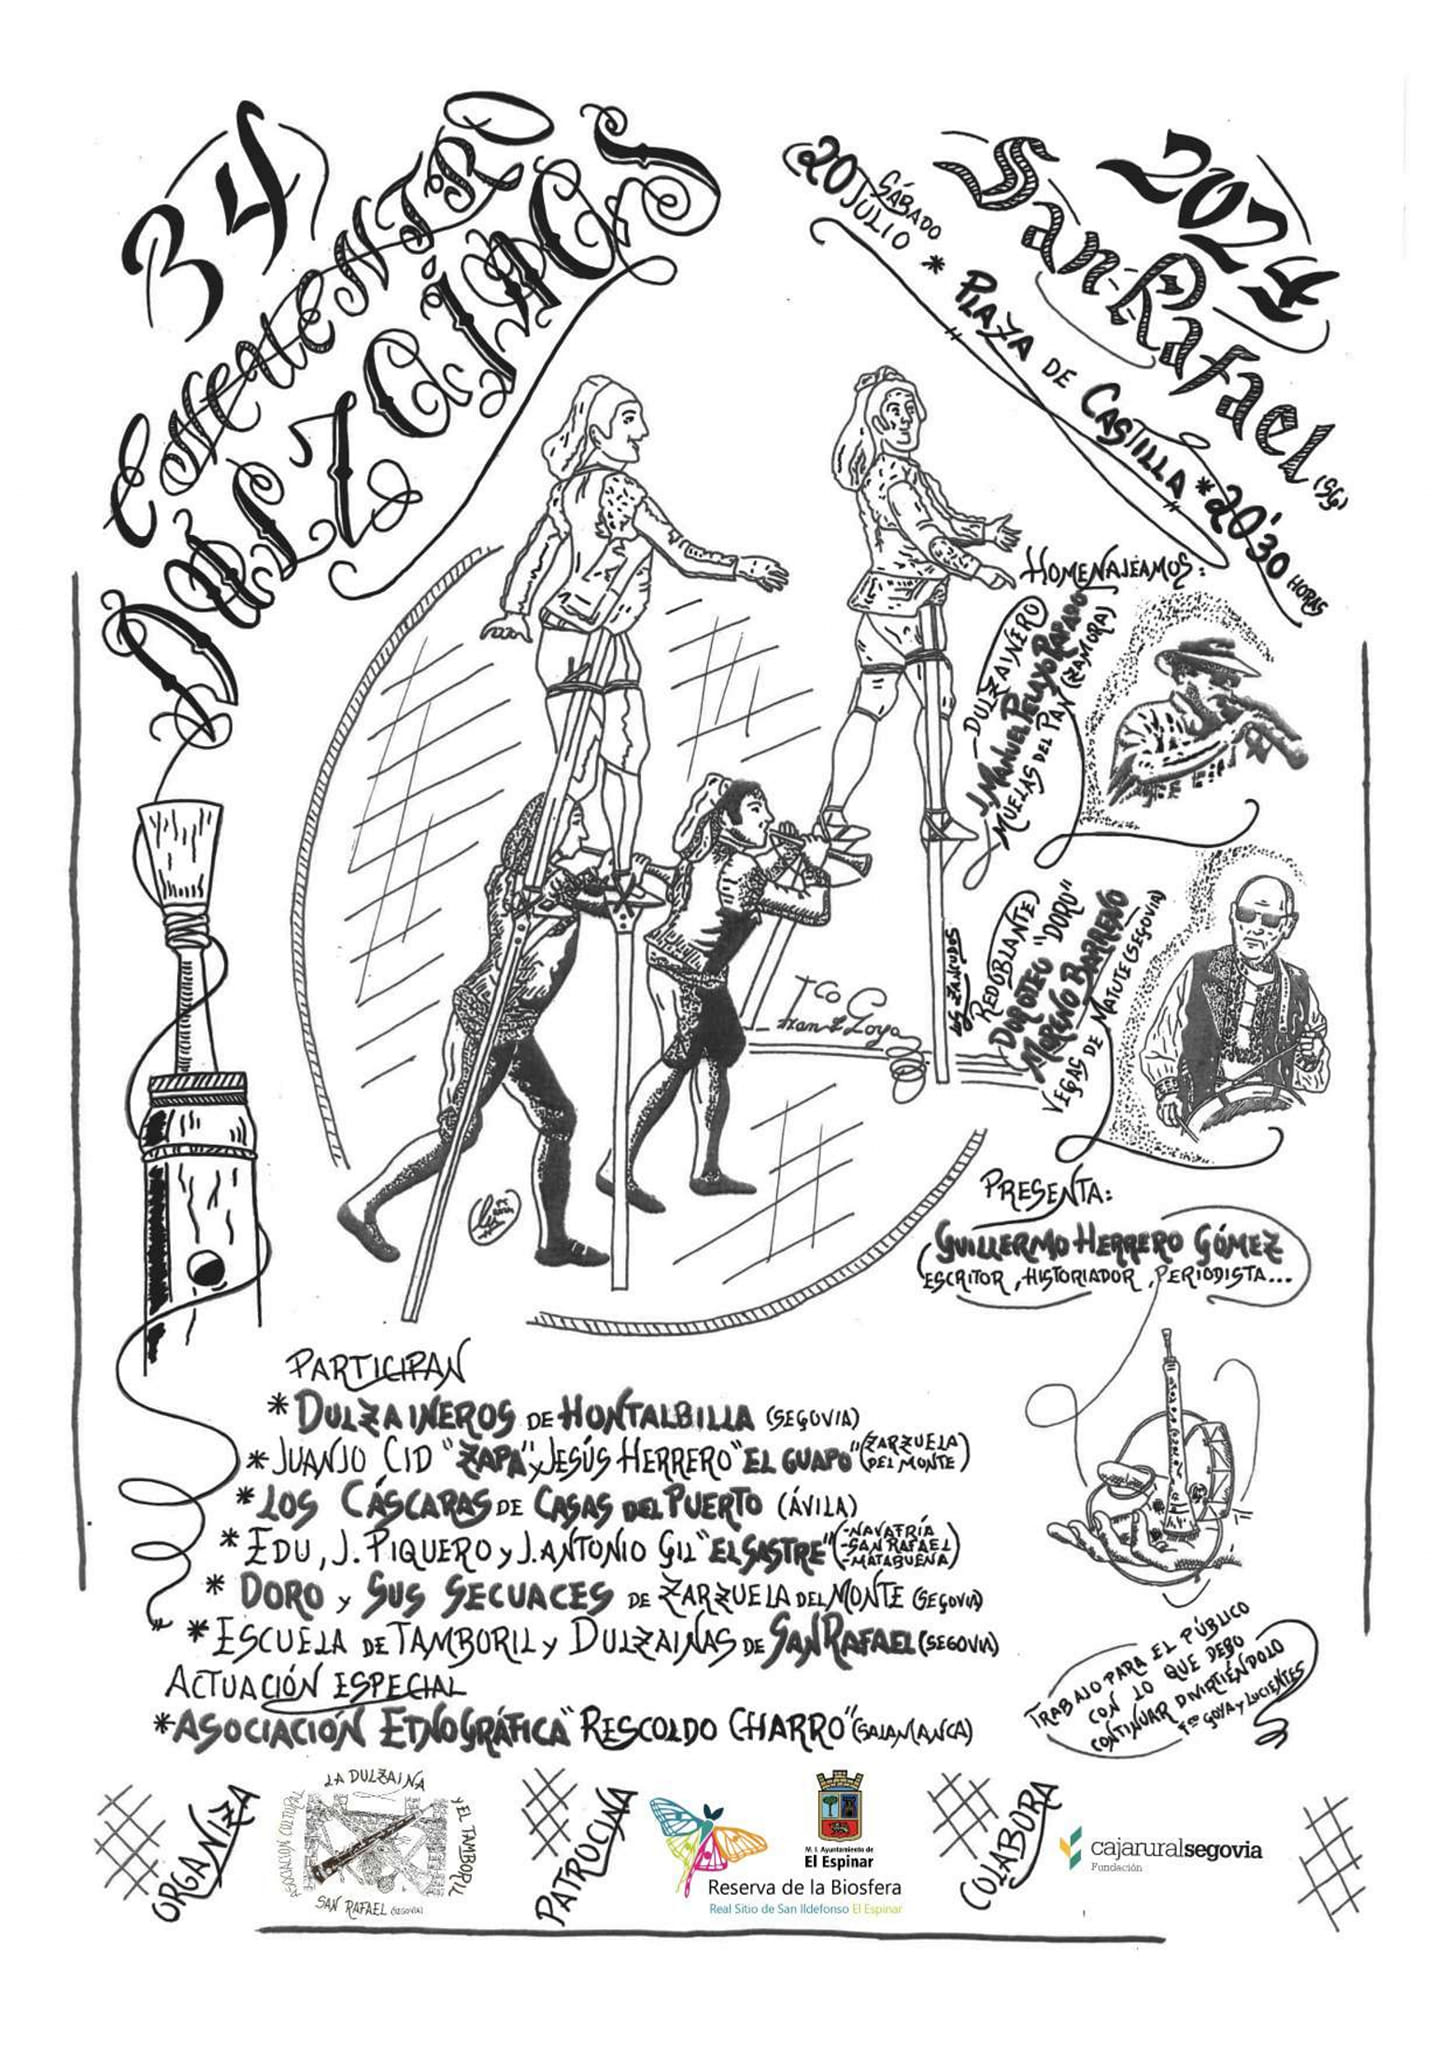 34
Encuentro
Dulzainas
2024
San Rafael (SG)
SÁBADO
20 JULIO * PLAZA DE CASTILLA * 20'30 HORAS
HOMENAJEAMOS:
DULZAINERO
J. MANUEL PELAYO RAPADO
MUELAS DEL PAN (ZAMORA)
REDOBLANTE
DOROTEO "DORO"
MORENO BARRENO
VEGAS DE MATUTE (SEGOVIA)
LOS ZANCUDOS
Fco Goya
PRESENTA:
GUILLERMO HERRERO GÓMEZ
ESCRITOR, HISTORIADOR, PERIODISTA...
PARTICIPAN
* DULZAINEROS DE HONTALBILLA (SEGOVIA)
* JUANJO CID "ZAPA" y JESÚS HERRERO "EL GUAPO" (ZARZUELA DEL MONTE)
* LOS CÁSCARAS DE CASAS DEL PUERTO (ÁVILA)
* EDU, J. PIQUERO y J. ANTONIO GIL "EL SASTRE" (-NAVAFRÍA -SAN RAFAEL -MATABUENA)
* DORO y SUS SECUACES DE ZARZUELA DEL MONTE (SEGOVIA)
* ESCUELA DE TAMBORIL y DULZAINAS DE SAN RAFAEL (SEGOVIA)
ACTUACIÓN ESPECIAL
* ASOCIACIÓN ETNOGRÁFICA "RESCOLDO CHARRO" (SALAMANCA)
TRABAJO PARA EL PÚBLICO
CON LO QUE DEBO
CONTINUAR DIVIRTIÉNDOLO
Fco GOYA y LUCIENTES
ORGANIZA
ASOCIACIÓN CULTURAL
LA DULZAINA
Y EL TAMBORIL
SAN RAFAEL (SEGOVIA)
PATROCINA
M. I. Ayuntamiento de
El Espinar
Reserva de la Biosfera
Real Sitio de San Ildefonso El Espinar
COLABORA
cajaruralsegovia
Fundación